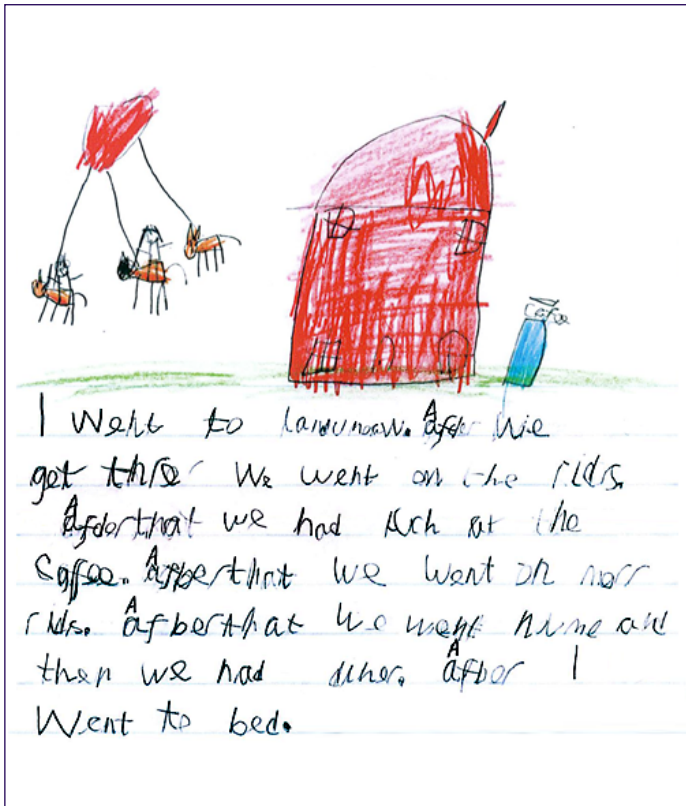 Cafe
I went to After we
get ther We went on the rids.
Afderthat we had luch at the
Caffee. Afberthat we went on morr
rids. Afberthat we went hume and
then we had diner. After I
Went to bed.